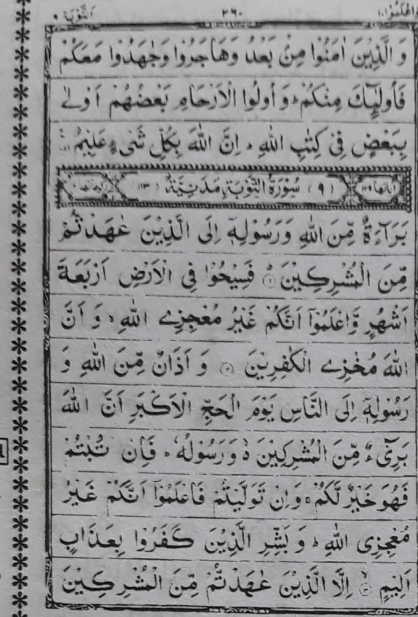 وَاعْلَمُوْٓا ١٠ ٢٦٠ اَلتَّوْبَة ٩
وَالَّذِيْنَ اٰمَنُوْا مِنْۢ بَعْدُ وَهَاجَرُوْا وَجٰهَدُوْا مَعَكُمْ
فَاُولٰٓئِكَ مِنْكُمْ ؕ وَ اُولُوا الْاَرْحَامِ بَعْضُهُمْ اَوْلٰى
بِبَعْضٍ فِىْ كِتٰبِ اللّٰهِ ؕ اِنَّ اللّٰهَ بِكُلِّ شَىْءٍ عَلِيْمٌ
(٩) سُوْرَةُ التَّوْبَةِ مَدَنِيَّةٌ (١١٣)
بَرَآءَةٌ مِّنَ اللّٰهِ وَرَسُوْلِهٖۤ اِلَى الَّذِيْنَ عٰهَدْتُّمْ
مِّنَ الْمُشْرِكِيْنَ ۝۱ فَسِيْحُوْا فِى الْاَرْضِ اَرْبَعَةَ
اَشْهُرٍ وَّاعْلَمُوْۤا اَنَّكُمْ غَيْرُ مُعْجِزِى اللّٰهِ ۙ وَ اَنَّ
اللّٰهَ مُخْزِى الْكٰفِرِيْنَ ۝۲ وَ اَذَانٌ مِّنَ اللّٰهِ وَ
رَسُوْلِهٖۤ اِلَى النَّاسِ يَوْمَ الْحَجِّ الْاَكْبَرِ اَنَّ اللّٰهَ
بَرِىْٓءٌ مِّنَ الْمُشْرِكِيْنَ ۙ وَرَسُوْلُهٗ ؕ فَاِنْ تُبْتُمْ
فَهُوَ خَيْرٌ لَّكُمْ ۚ وَاِنْ تَوَلَّيْتُمْ فَاعْلَمُوْۤا اَنَّكُمْ غَيْرُ
مُعْجِزِى اللّٰهِ ؕ وَ بَشِّرِ الَّذِيْنَ كَفَرُوْا بِعَذَابٍ
اَلِيْمٍ ۝۳ اِلَّا الَّذِيْنَ عٰهَدْتُّمْ مِّنَ الْمُشْرِكِيْنَ